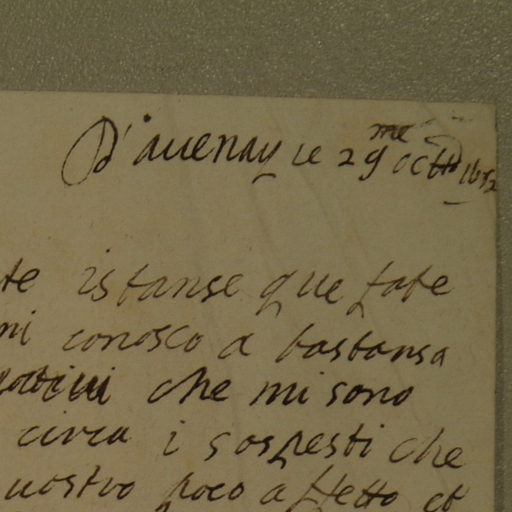 D'auenay ce 29me octb 1652
te istanse que fate
ni conosco a bastansa
che mi sono
circa i sospesti che
uostro poco affetto et